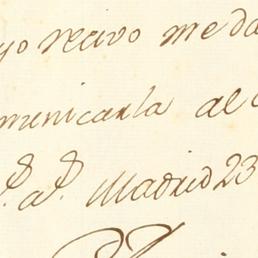 yo recivo me da
municarla al
Madrid 23